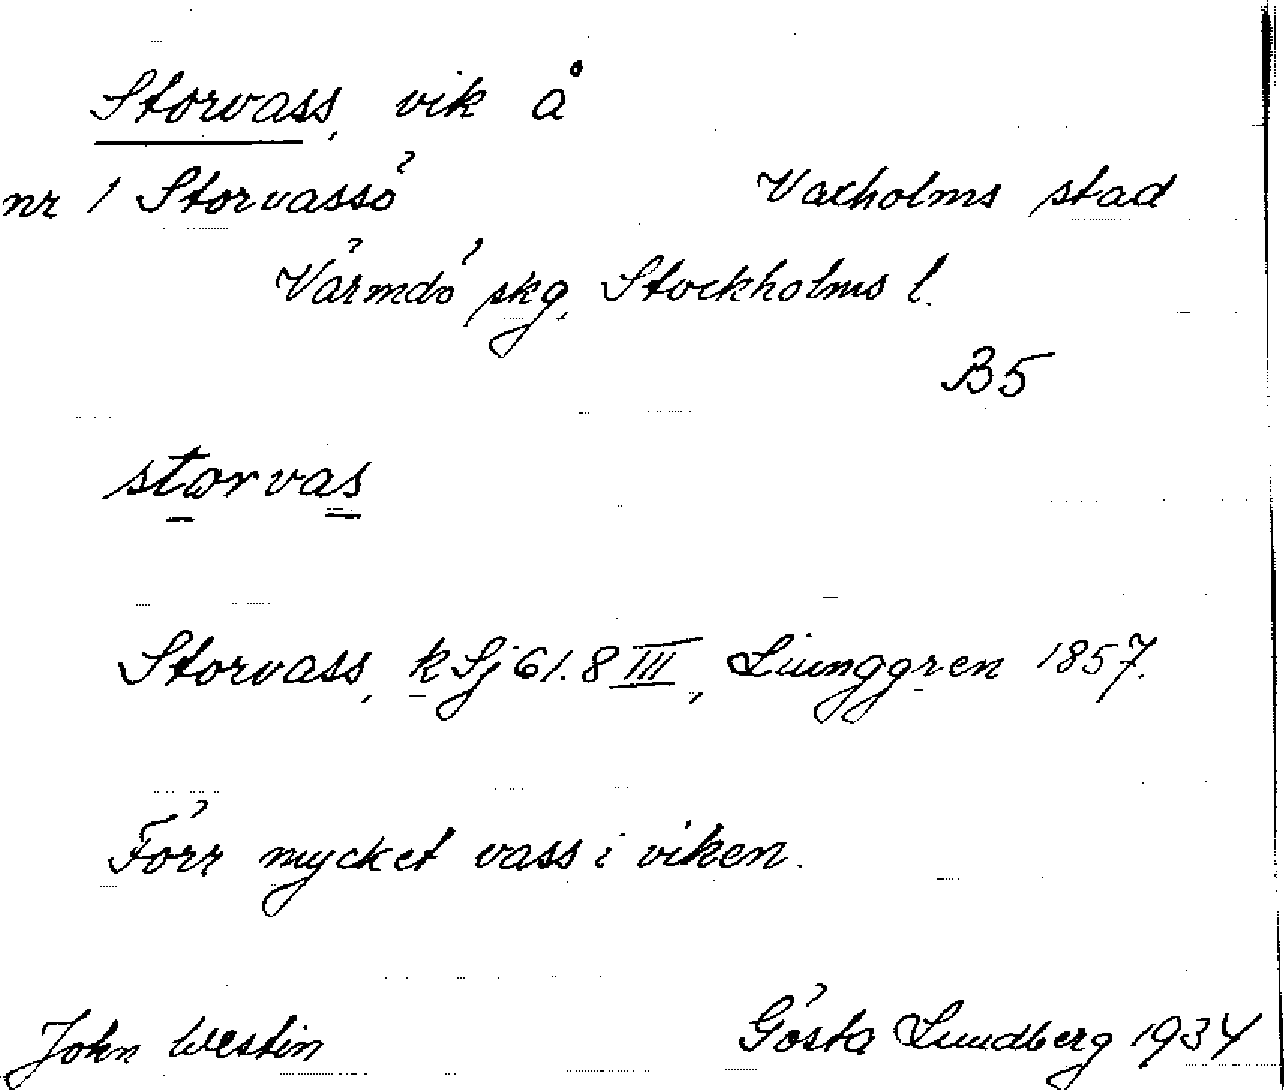 Storvass, vik å
nr 1 Storvassö Vaxholms stad
Värmdö skg, Stockholms l.
B5
storvas
Storvass, k Sj 61.8 III, Liunggren 1857.
Förr mycket vass i viken.
John Westin Gösta Lundberg 1934